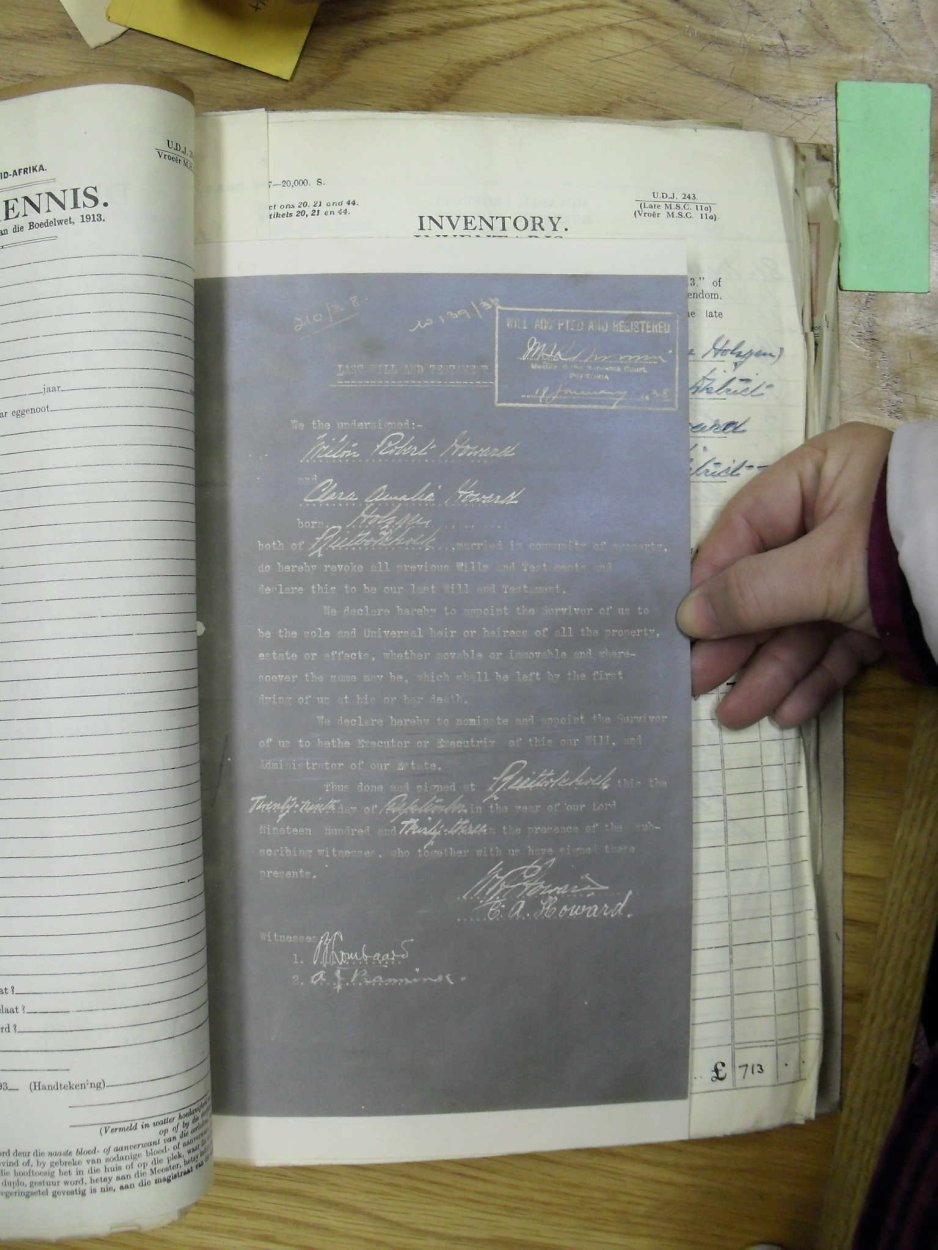 ID-AFRIKA.
ENNIS.
an die Boedelwet, 1913.
U.D.J.
Vroeër M.S.
jaar
ar eggenoot
at?
laat?
rd?
93 (Handtekening)
(Vermeld in watter hoedanigheid
op of by die
ord deur die naaste bloed- of aanverwant van die
vind of, by gebreke van sodanige bloed- of aanverwant
die hooftoesig het in die huis of op die plek, waar
duplo, gestuur word, hetsy aan die Meester, hetsy
regeringsetel gevestig is nie, aan die magistraat van
7—20,000. S.
ct ons 20. 21 and 44.
tikels 20, 21 en 44.
U.D.J. 243.
(Late M.S.C. 11a)
(Vroër M.S.C. 11a)
INVENTORY.
INVENTARIS
3," of
endom.
he late
Holzgen)
istrict
ward
istrict
WILL ACCEPTED AND REGISTERED
Master of the Supreme Court,
PRETORIA
19 January 1938
LAST WILL AND TESTAMENT
We the undersigned:-
Wilton Robert Howard
and
Clara Amalie Howard
born Holzgen
both of Rietbokhoek married in community of property,
do hereby revoke all previous Wills and Testaments and
declare this to be our last Will and Testament.
We declare hereby to appoint the Survivor of us to
be the sole and Universal heir or heiress of all the property,
estate or effects, whether movable or immovable and where-
soever the same may be, which shall be left by the first
dying of us at his or her death.
We declare hereby to nominate and appoint the Survivor
of us to bethe Executor or Executrix of this our Will, and
Administrator of our Estate.
Thus done and signed at Rietbokhoek this the
Twenty-ninth day of September in the year of our Lord
Nineteen Hundred and Thirty-three in the presence of the sub-
scribing witnesses, who together with us have signed these
presents.
W R Howard
C. A. Howard.
Witnesses
1. Lombaard
2. A. J.
£ 713